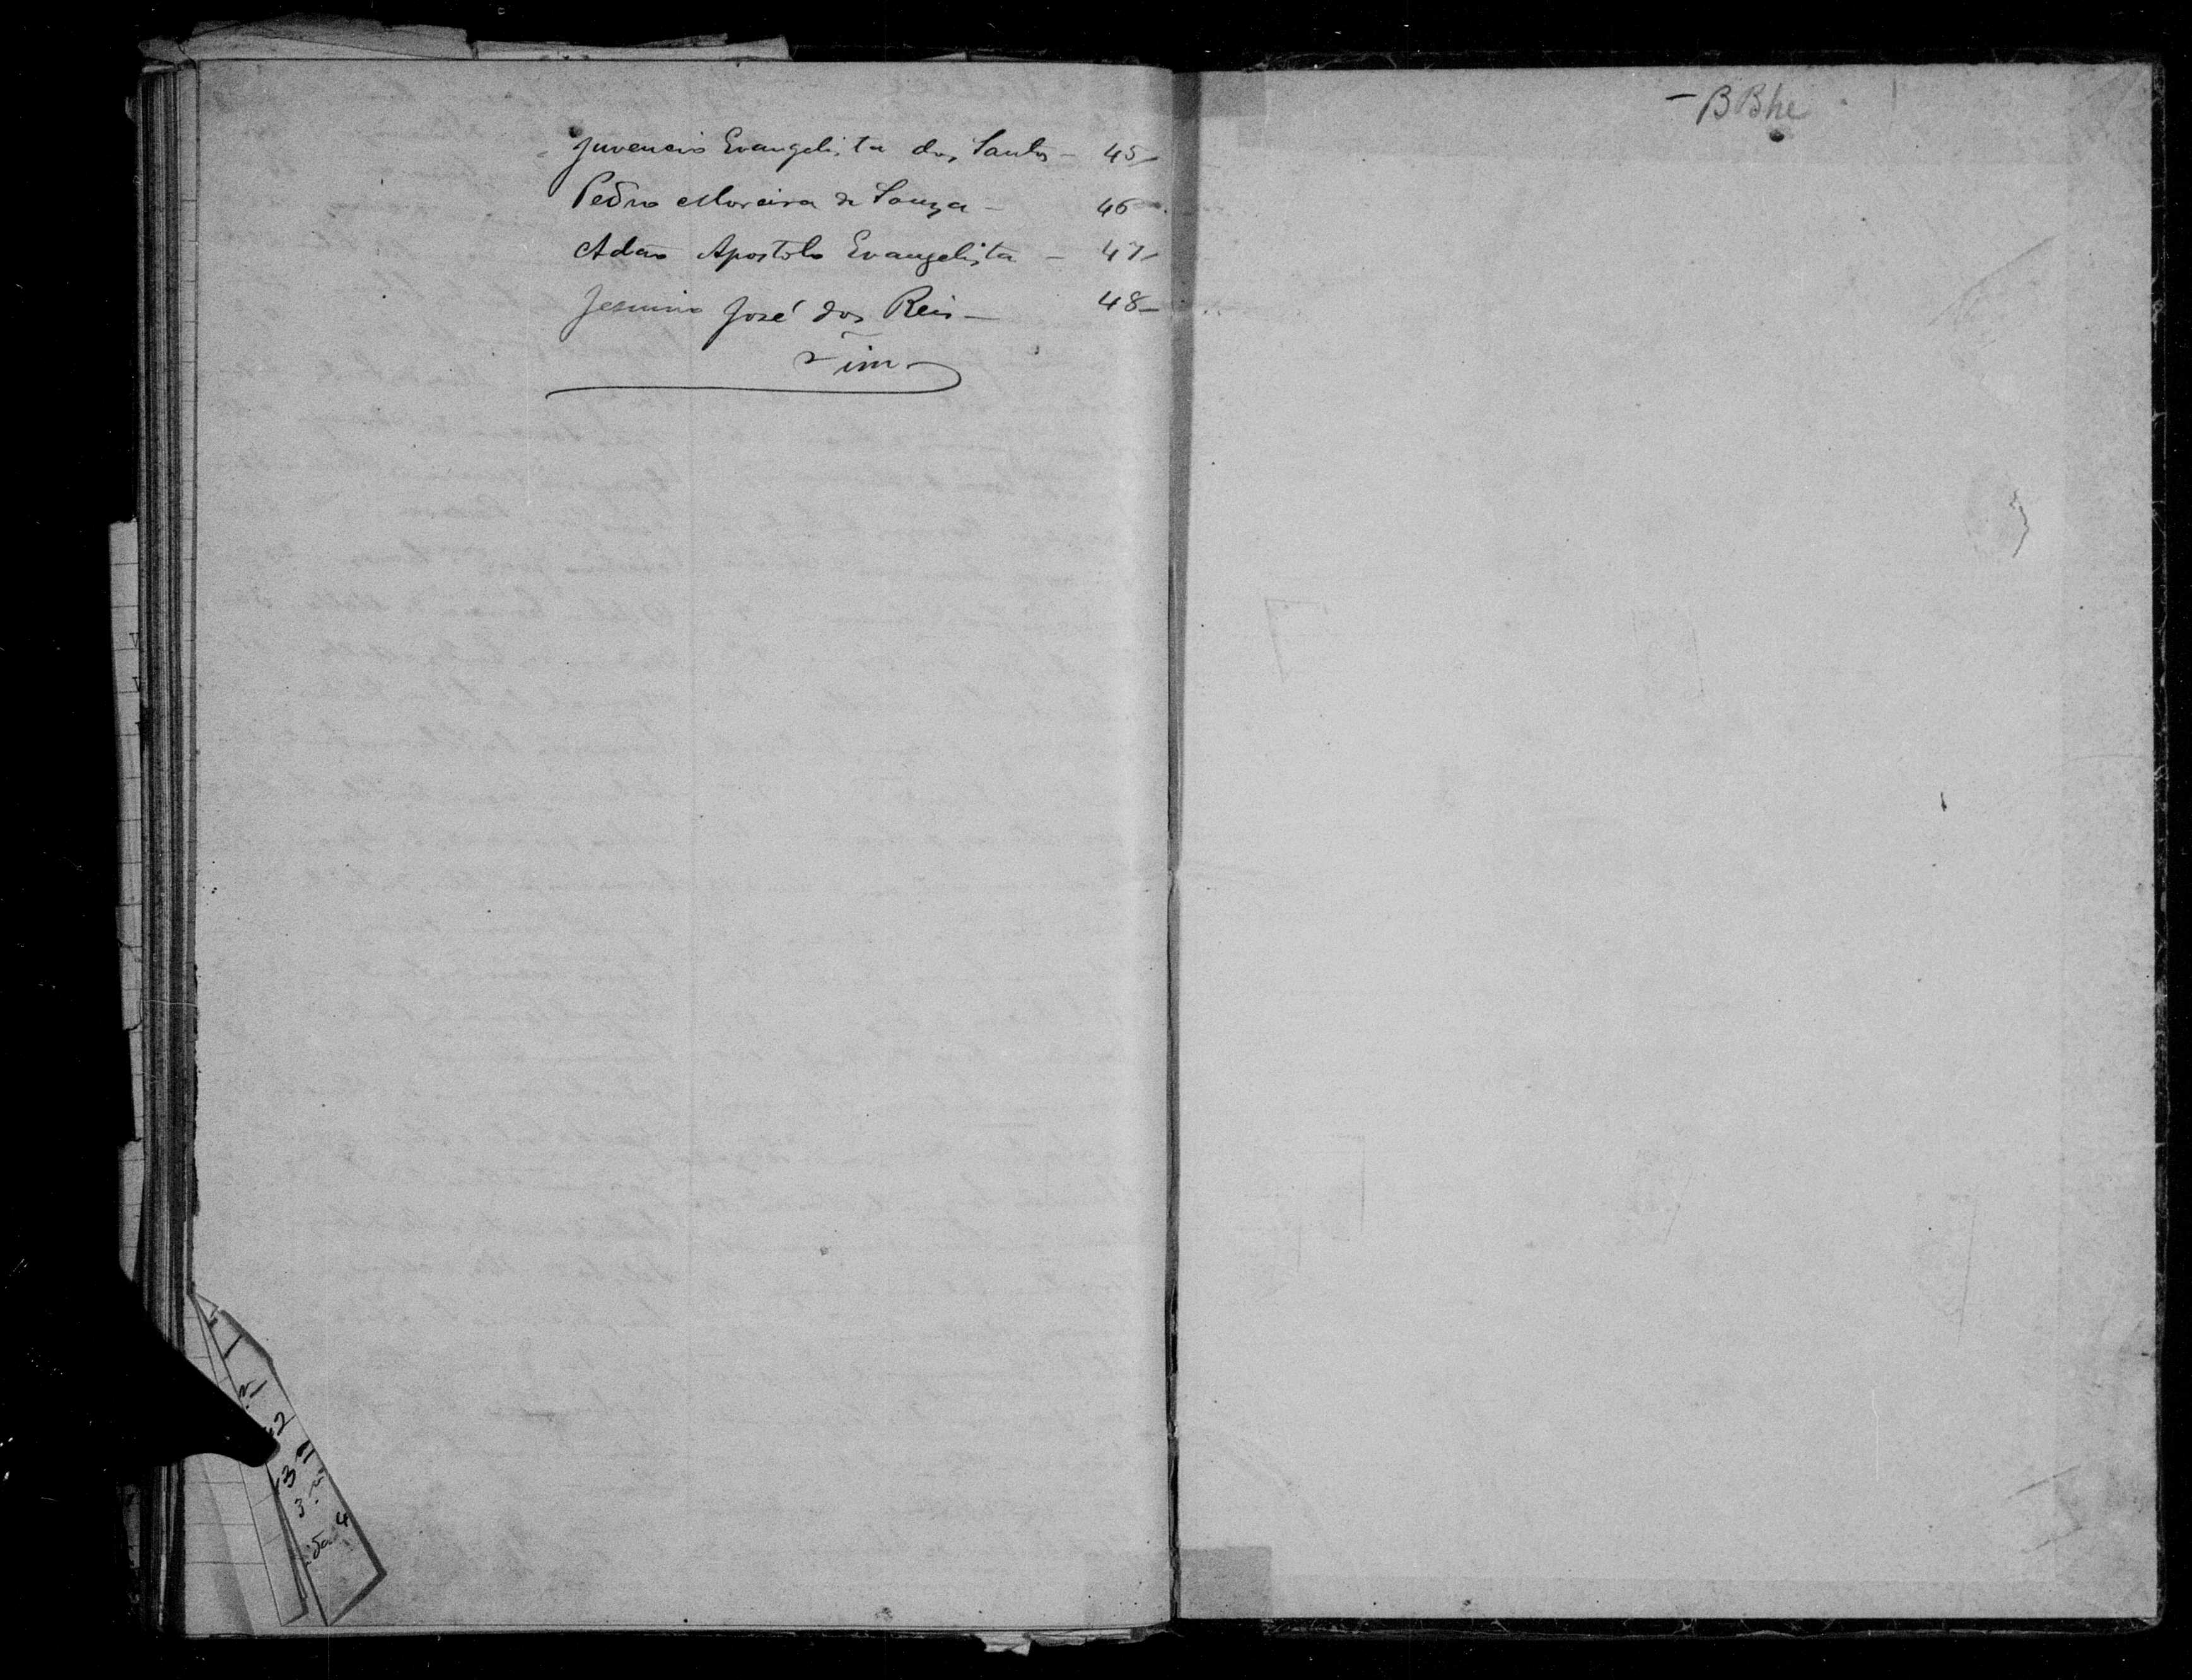 Juvencio Evangelista dos Santos - 45
Pedro Moreira de Souza - 46
Adão Apostolo Evangelista - 47
Jesuino José dos Reis - 48
Fim
- BBhe